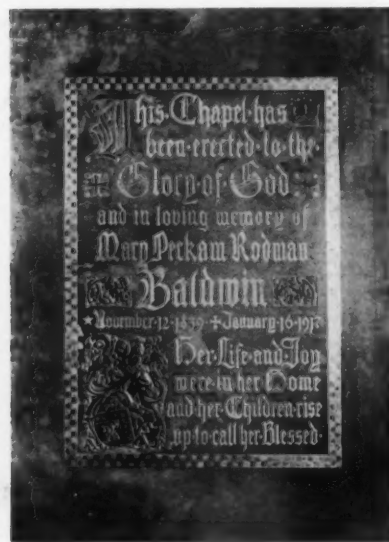 This·Chapel·has
been·erected·to·the·
Glory·of·God
and in loving memory of
Mary Peckam Rodman
Baldwin
★November·12·1839·✝January·16·1917
Her·Life·and·Joy
were·in·her·Home
and·her·Children·rise
up·to·call·her·Blessed·